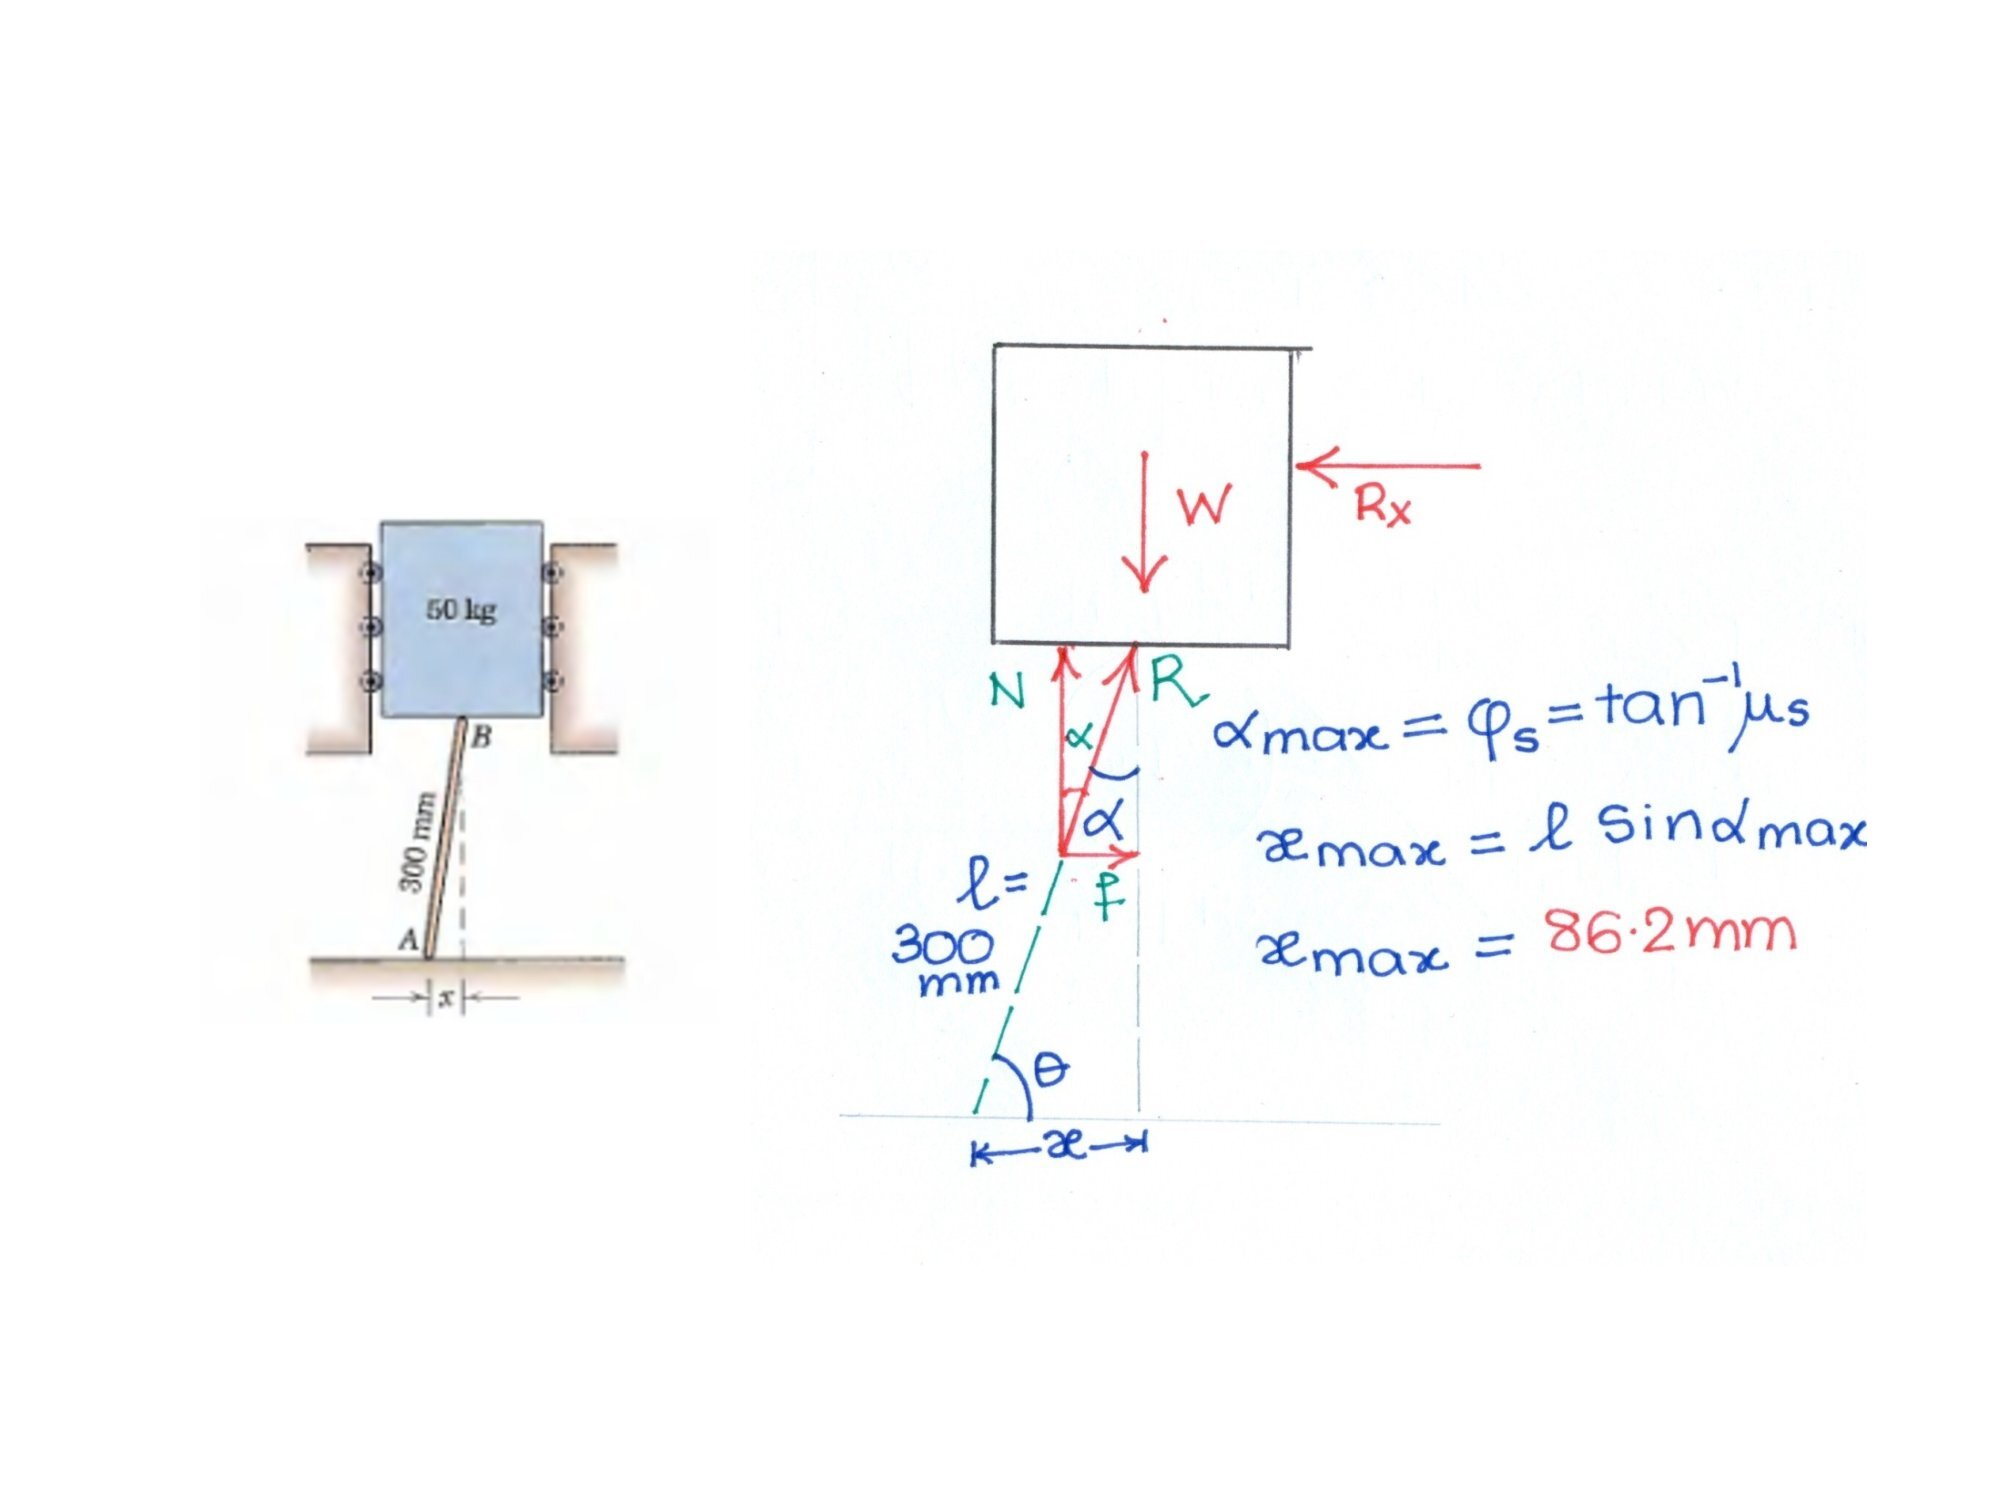 50 kg
B
300 mm
A
x
W
Rx
N
R
α
α
F
l =
300
mm
θ
x
αmax = φs = tan⁻¹μs
xmax = l Sinαmax
xmax = 86.2mm